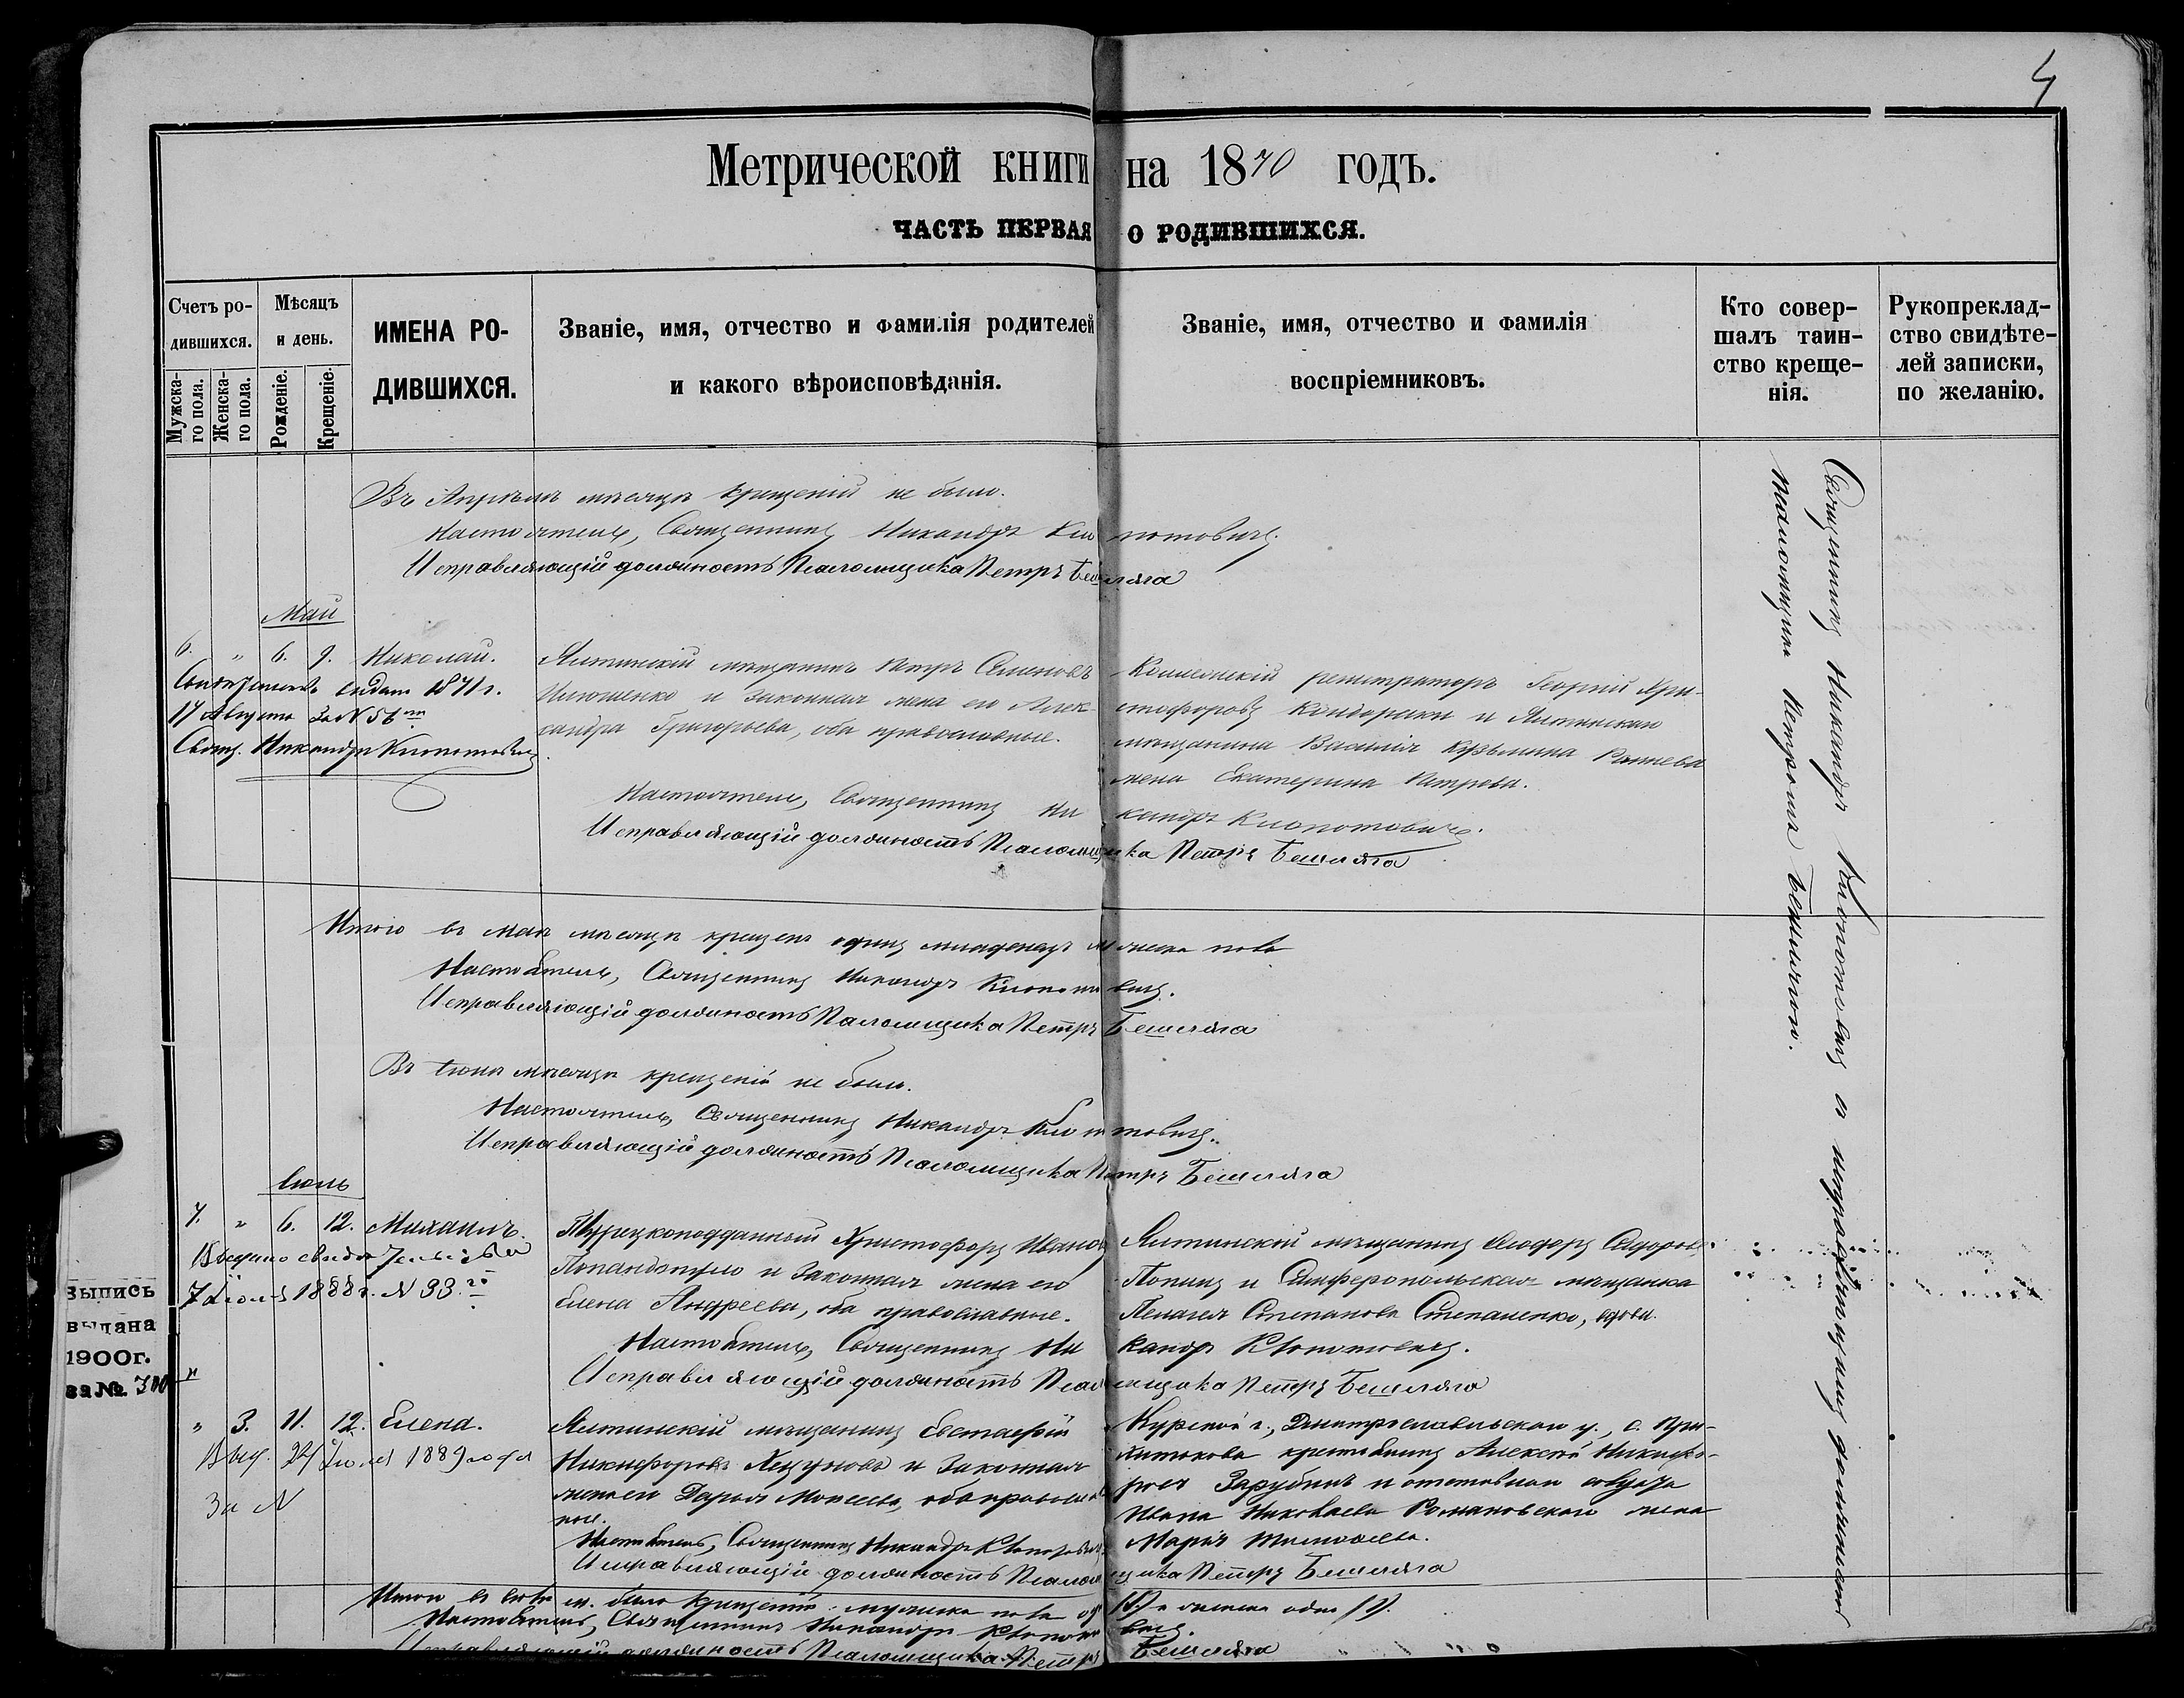 4
Метрической книги на 1870 годъ.
ЧАСТЬ ПЕРВАЯ О РОДИВШИХСЯ.
Счетъ родившихся.
Мужскаго пола.
Женскаго пола.
Мѣсяцъ и день.
Рожденіе.
Крещеніе.
ИМЕНА РОДИВШИХСЯ.
Званіе, имя, отчество и фамилія родителей
и какого вѣроисповѣданія.
Званіе, имя, отчество и фамилія
воспріемниковъ.
Кто совершалъ таинство крещенія.
Рукоприкладство свидѣтелей записки, по желанію.
Въ Апрѣлѣ мѣсяцѣ крещеній не было.
Настоятель, Священникъ Никандръ Клопотовичъ.
Исправляющій должность Псаломщика Петръ Бешляга
Май
6. " 6. 9. Николай.
Свидѣтельство выдано 1871 г.
17 Августа За N 56
Свящ. Никандръ Клопотовичъ
Ялтинскій мѣщанинъ Петръ Семеновъ
Илюшенко и законная жена его Алек-
сандра Григорьева, оба православные.
Коллежскій регистраторъ Георгій Хри-
стофоровъ и Ялтинскаго
мѣщанина Василія Кузьмина
жена Екатерина Петрова.
Настоятель, Священникъ Никандръ Клопотовичъ.
Исправляющій должность Псаломщика Петръ Бешляга
Итого въ Маѣ мѣсяцѣ крещенъ одинъ младенецъ мужска пола
Настоятель, Священникъ Никандръ Клопотовичъ.
Исправляющій должность Псаломщика Петръ Бешляга
Въ Іюнѣ мѣсяцѣ крещеній не было.
Настоятель, Священникъ Никандръ Клопотовичъ.
Исправляющій должность Псаломщика Петръ Бешляга
Іюль
7. " 6. 12. Михаилъ.
Выдано свидетельство
7 1888 г. N 93
Турецкоподданный Христофоръ Ивановъ
и законная жена его
Елена Андреева, оба православные.
Ялтинскій мѣщанинъ Ѳеодоръ
и Симферопольская мѣщанка
Пелагея Степанова Степаненко, вдова.
Настоятель, Священникъ Никандръ Клопотовичъ.
Исправляющій должность Псаломщика Петръ Бешляга
Выпись
выдана
1900 г.
за №
" 3. 11. 12. Елена.
Выд. 24 Іюля 1889 года
За N
Ялтинскій мѣщанинъ Евстафій
Никифоровъ и законная
жена его Дарья Моисеева, оба православ-
ные.
Курской г., Дмитрославльскаго у., с.
крестьянинъ Алексѣй Никифо-
ровъ Зарубинъ и отставнаго
Ивана Николаева Романовскаго жена
Марія
Настоятель, Священникъ Никандръ Клопотовичъ.
Исправляющій должность Псаломщика Петръ Бешляга
Итого въ Іюлѣ м. было крещеній: мужска пола одинъ (1) и женска одна (1).
Настоятель, Священникъ Никандръ Клопотовичъ.
Исправляющій должность Псаломщика Петръ Бешляга
Священникъ Никандръ Клопотовичъ и исправляющимъ должность
псаломщика Петромъ Бешлягою.